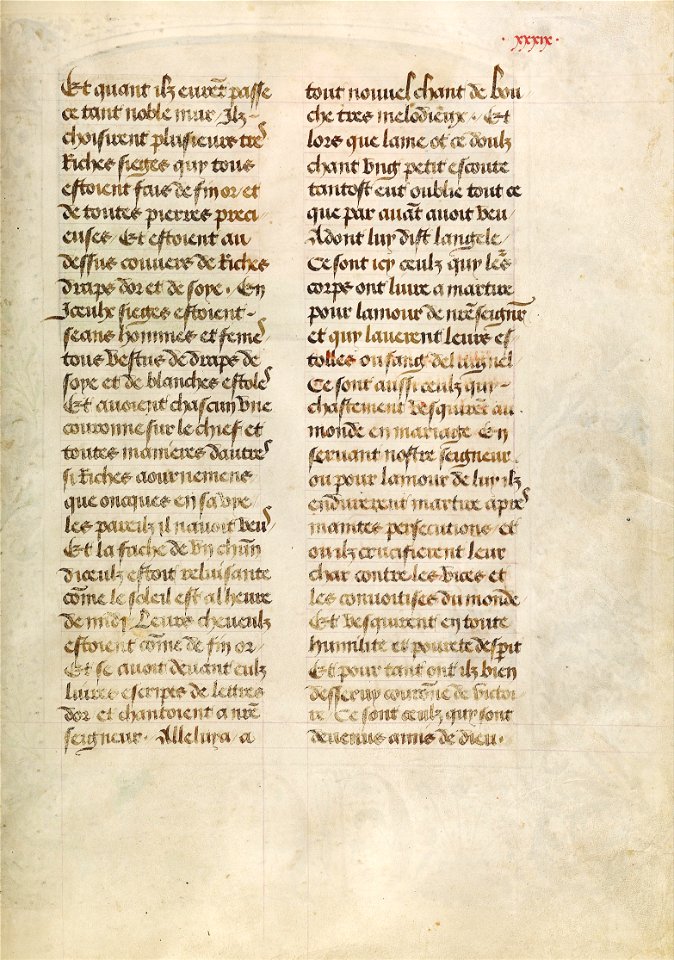 xxxix
Et quant ilz eurẽt passe
ce tant noble mur / Ilz
choisirent plusieurs tres
Riches sieges quy tous
estoient fais de fin or et
de toutes pierres preci
euses / Et estoient au
dessus couuers de Riches
draps dor et de soye . En
Iceulx sieges estoient
seans hommes et femes
tous vestus de draps de
soye et de blanches estoles
Et auoient chascun vne
couronne sur le chief et
toutes manieres dautres
si Riches aournemens
que oncques en sa vye
les pareilz il nauoit veu
Et la fache de vn chũn
diceulz estoit reluisante
cõme le soleil est al heure
de midj / Leurs cheueulz
estoient cõme de fin or /
Et se auoit deuant eulz
liures escrips de lettres
dor et chantoient a nr̃e
seigneur . Alleluya / a
tout nouuel chant de bou
che tres melodieux . Et
lors que lame ot ce doulz
chant vng petit escoute
tantost eut oublie tout ce
que par auãt auoit veu
Adont luy dist langele /
Ce sont icy ceulz quy leurs
corps ont liure a martire
pour lamour de nr̃e seignr̃
et quy lauerent leurs es
tolles ou sang del aignel
Ce sont aussi ceulz quy
chastement vesquirẽt au
monde en mariage / En
seruant nostre seigneur
ou pour lamour de luy ilz
endurerent martire apres
maintes persecutions / et
ou ilz crucifierent leur
char contre les vices et
les conuoitises du monde
Et vesquirent en toute
humilite et pourete desp̃it
Et pour tant ont ilz bien
desseruy courõne de victoi
re / Ce sont ceulz quy sont
deuenus amis de dieu .